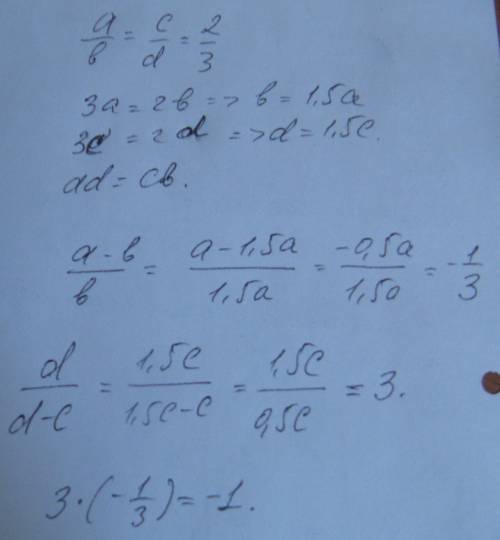 a/b = c/d = 2/3
3a = 2b => b = 1,5a
3c = 2d => d = 1,5c.
ad = cb.
(a - b)/b = (a - 1,5a)/(1,5a) = (-0,5a)/(1,5a) = -1/3
d/(d-c) = 1,5c/(1,5c-c) = 1,5c/0,5c = 3.
3·(-1/3) = -1.